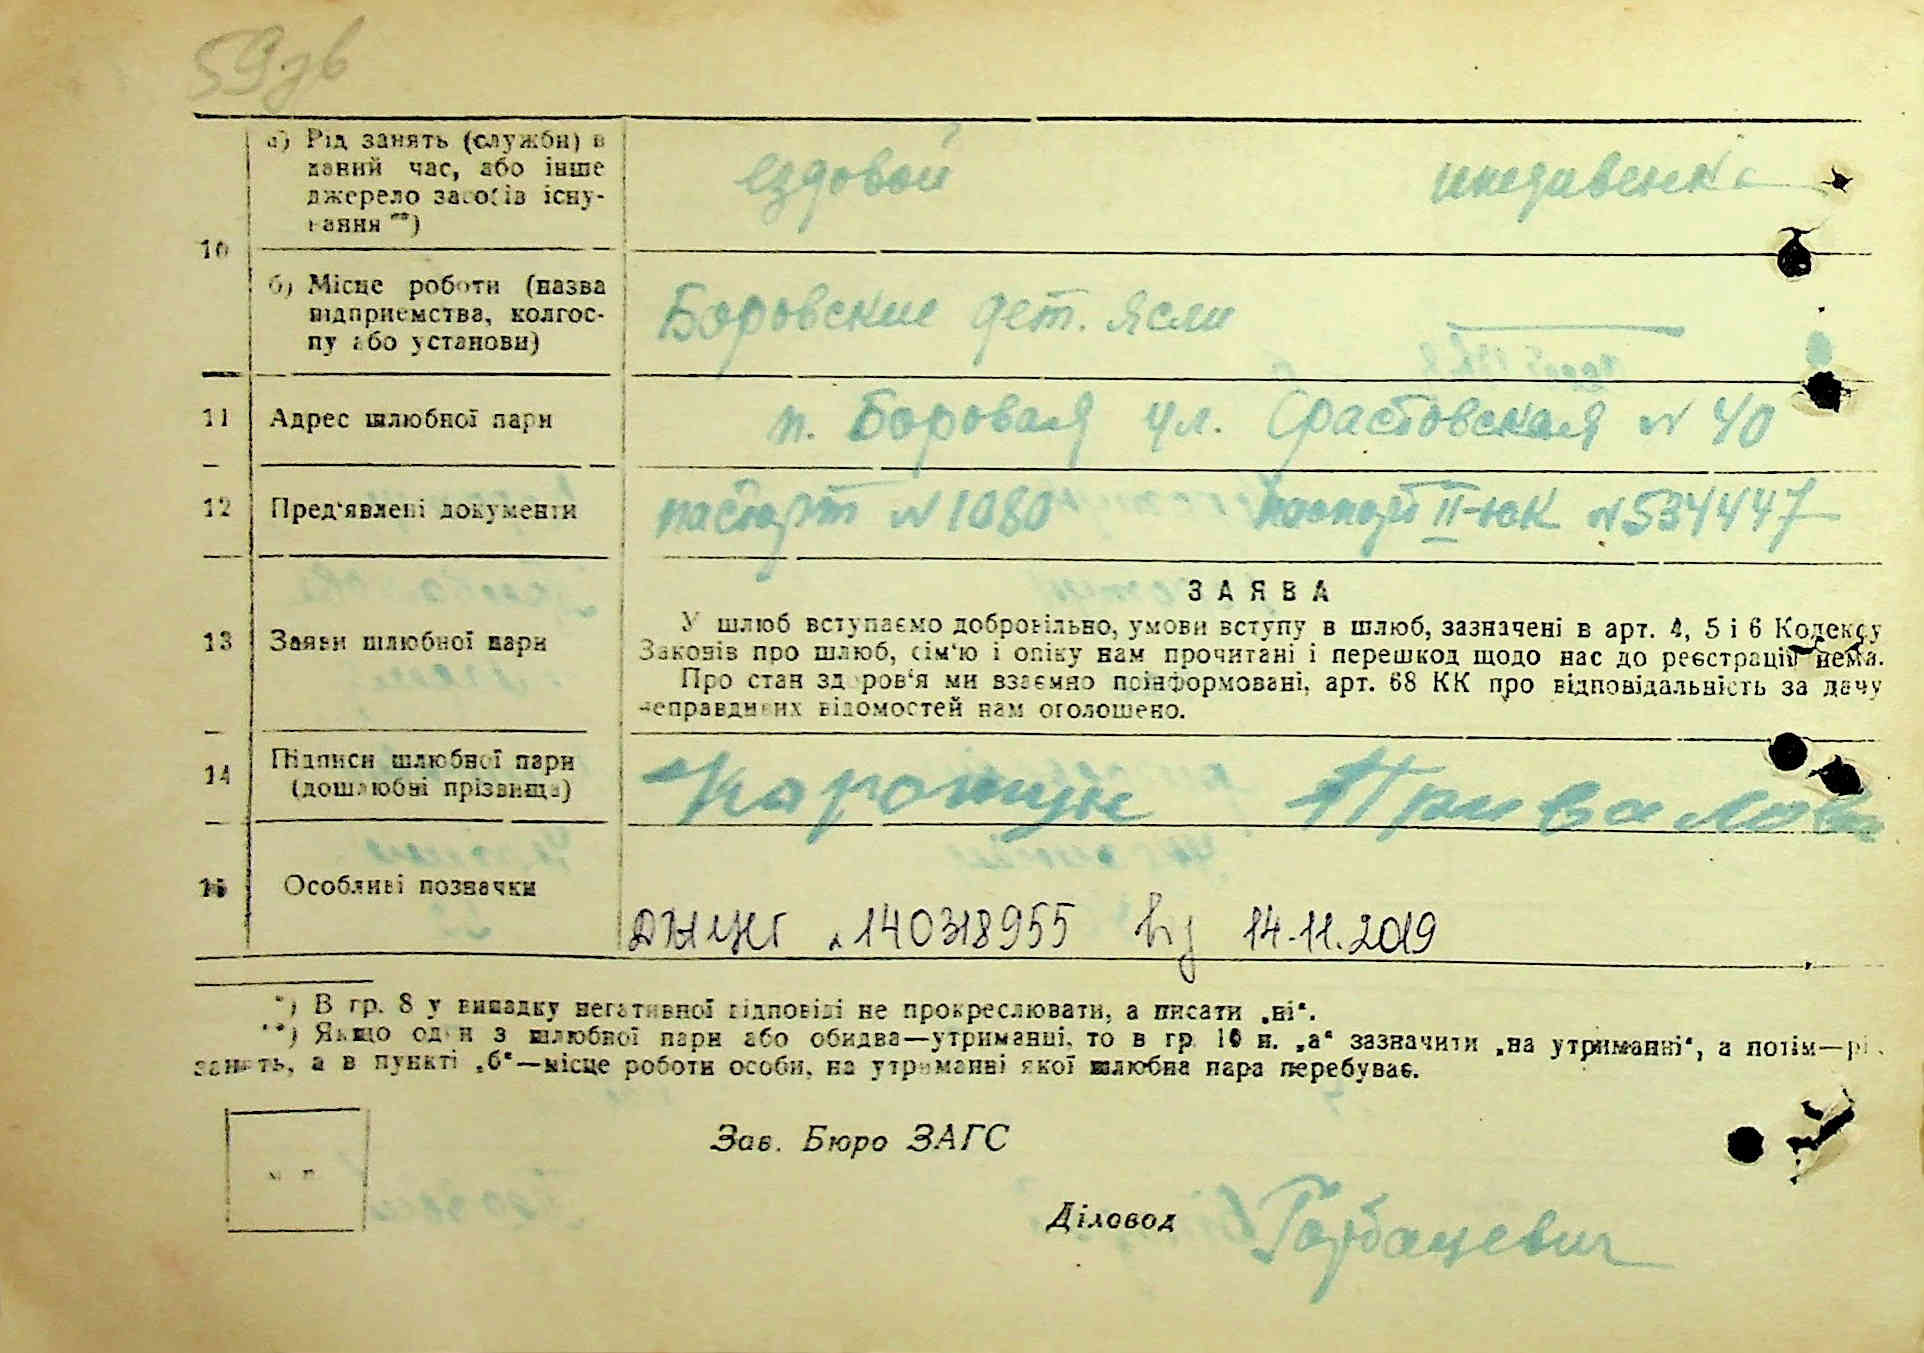 59 зв
10
а) Рід занять (служби) в
даний час, або інше
джерело засобів існу-
вання **)
ездовой иждивенка
б) Місце роботи (назва
підприємства, колгос-
пу або установи)
Боровские дет. ясли
11 Адрес шлюбної пари
п. Боровая ул. Фастовская № 40
12 Пред'явлені документи
паспорт № 1080 паспорт II-юк № 534447
13 Заяви шлюбної пари
ЗАЯВА
У шлюб вступаємо добровільно, умови вступу в шлюб, зазначені в арт. 4, 5 і 6 Кодексу
Законів про шлюб, сім'ю і опіку нам прочитані і перешкод щодо нас до реєстрації нема.
Про стан здоров'я ми взаємно поінформовані, арт. 68 КК про відповідальність за дачу
неправдивих відомостей нам оголошено.
14 Підписи шлюбної пари
(дошлюбні прізвища)
Коротун Привалова
15 Особливі позначки
140318955 від 14.11.2019
*) В гр. 8 у випадку негативної відповіді не прокреслювати, а писати „ні“.
**) Якщо один з шлюбної пари або обидва—утриманці, то в гр. 10 п. „а“ зазначити „на утриманні“, а потім—рі
занять, а в пункті „б“—місце роботи особи, на утриманні якої шлюбна пара перебуває.
м п
Зав. Бюро ЗАГС
Діловод Горбацевич